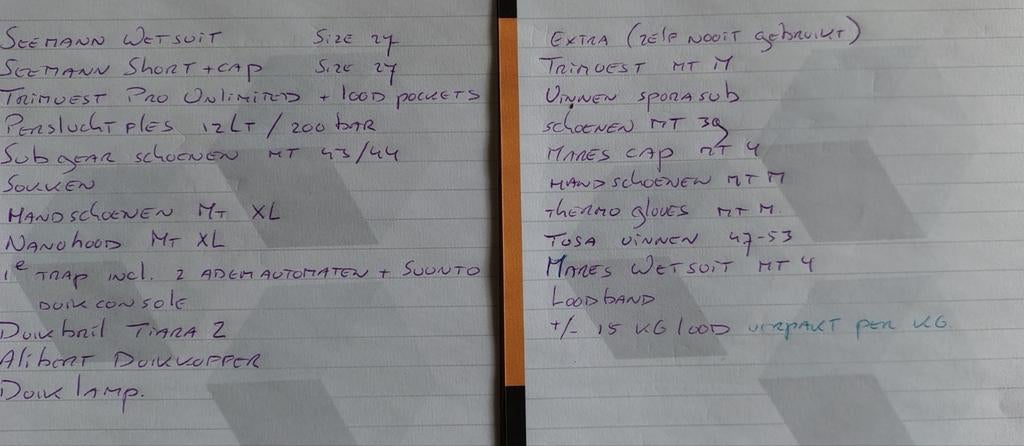 SEEMANN WETSUIT SIZE 27
SEEMANN SHORT + CAP SIZE 27
TRIMVEST PRO UNLIMITED + LOOD POCKETS
PERSLUCHT FLES 12LT / 200 BAR
SUBGEAR SCHOENEN MT 43/44
SOKKEN
HANDSCHOENEN MT XL
NANOHOOD MT XL
1e TRAP INCL. 2 ADEMAUTOMATEN + SUUNTO
DUIKCONSOLE
DUIKBRIL TIARA 2
ALIBERT DUIKKOFFER
DUIKLAMP.
EXTRA (ZELF NOOIT GEBRUIKT)
TRIMVEST MT M
VINNEN SPORASUB
SCHOENEN MT 39
MARES CAP MT 4
HANDSCHOENEN MT M
THERMO GLOVES MT M.
TUSA VINNEN 47-53
MARES WETSUIT MT 4
LOODBAND
+/- 15 KG LOOD VERPAKT PER KG